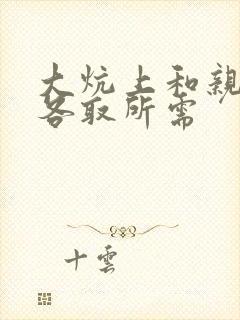 大炕上和親
各取所需
十雲